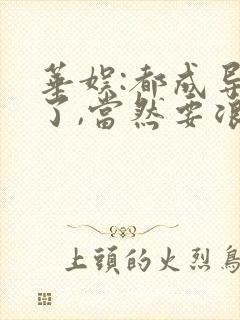 華娱:都成导
了,當然要浪
上頭的火烈鳥